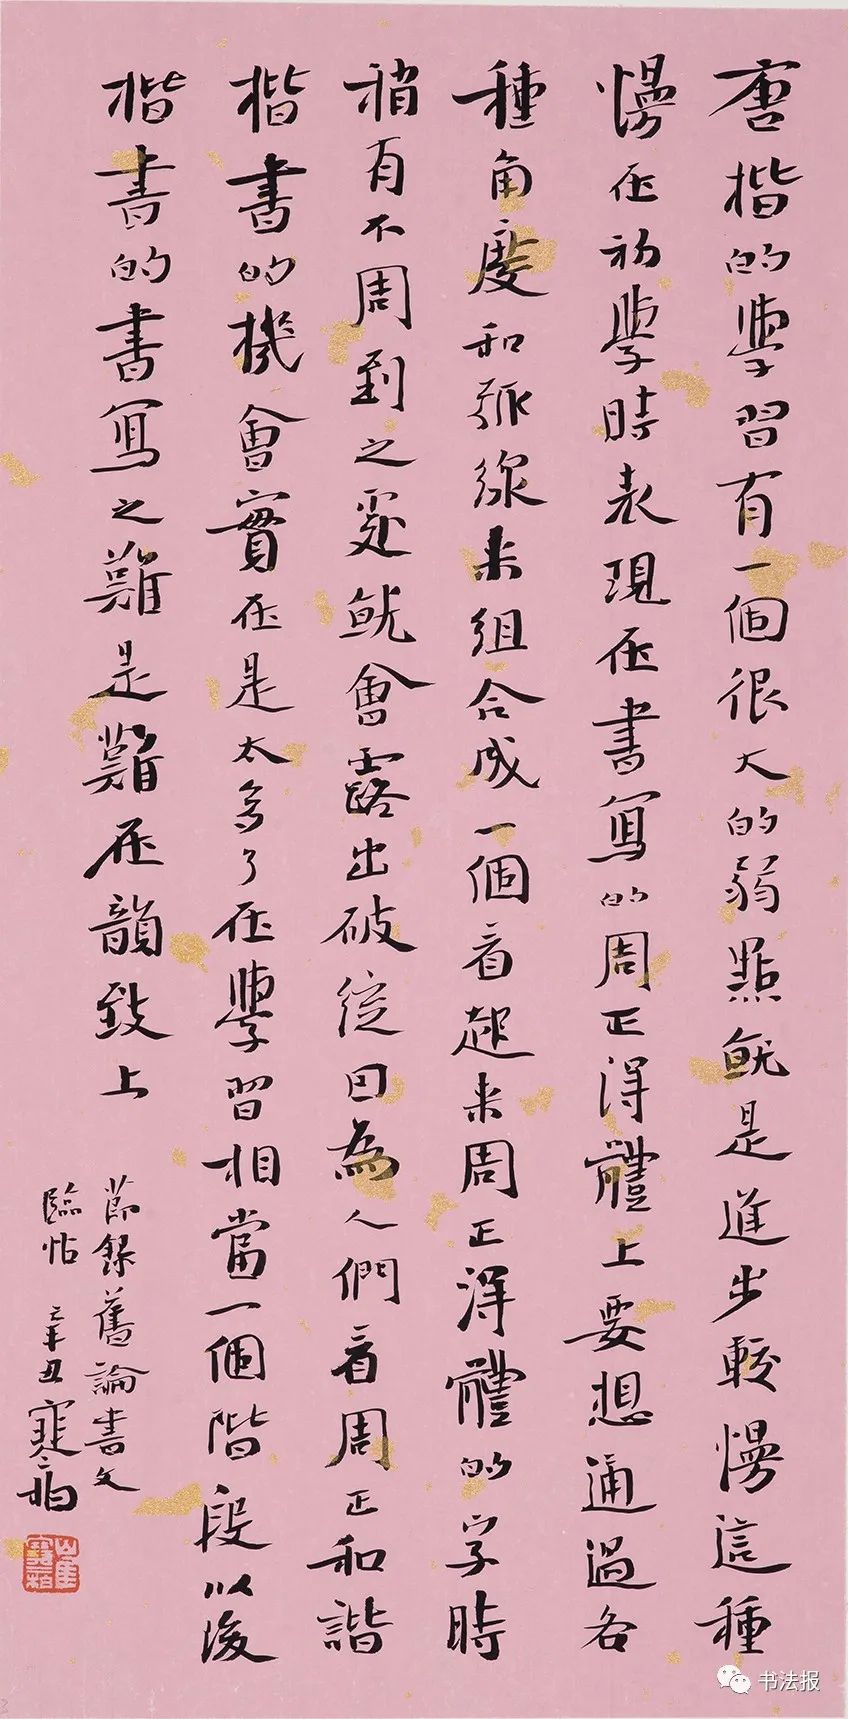 唐楷的學習有一個很大的弱點就是進步較慢這種
慢在初學時表現在書寫的周正得體上要想通過各
種角度和弧線來組合成一個看起來周正得體的字時
稍有不周到之處就會露出破綻因為人們看周正和諧
楷書的機會實在是太多了在學習相當一個階段以後
楷書的書寫之難是難在韻致上
節錄舊論書文
臨帖 辛丑寒柏
崔寒柏
书法报